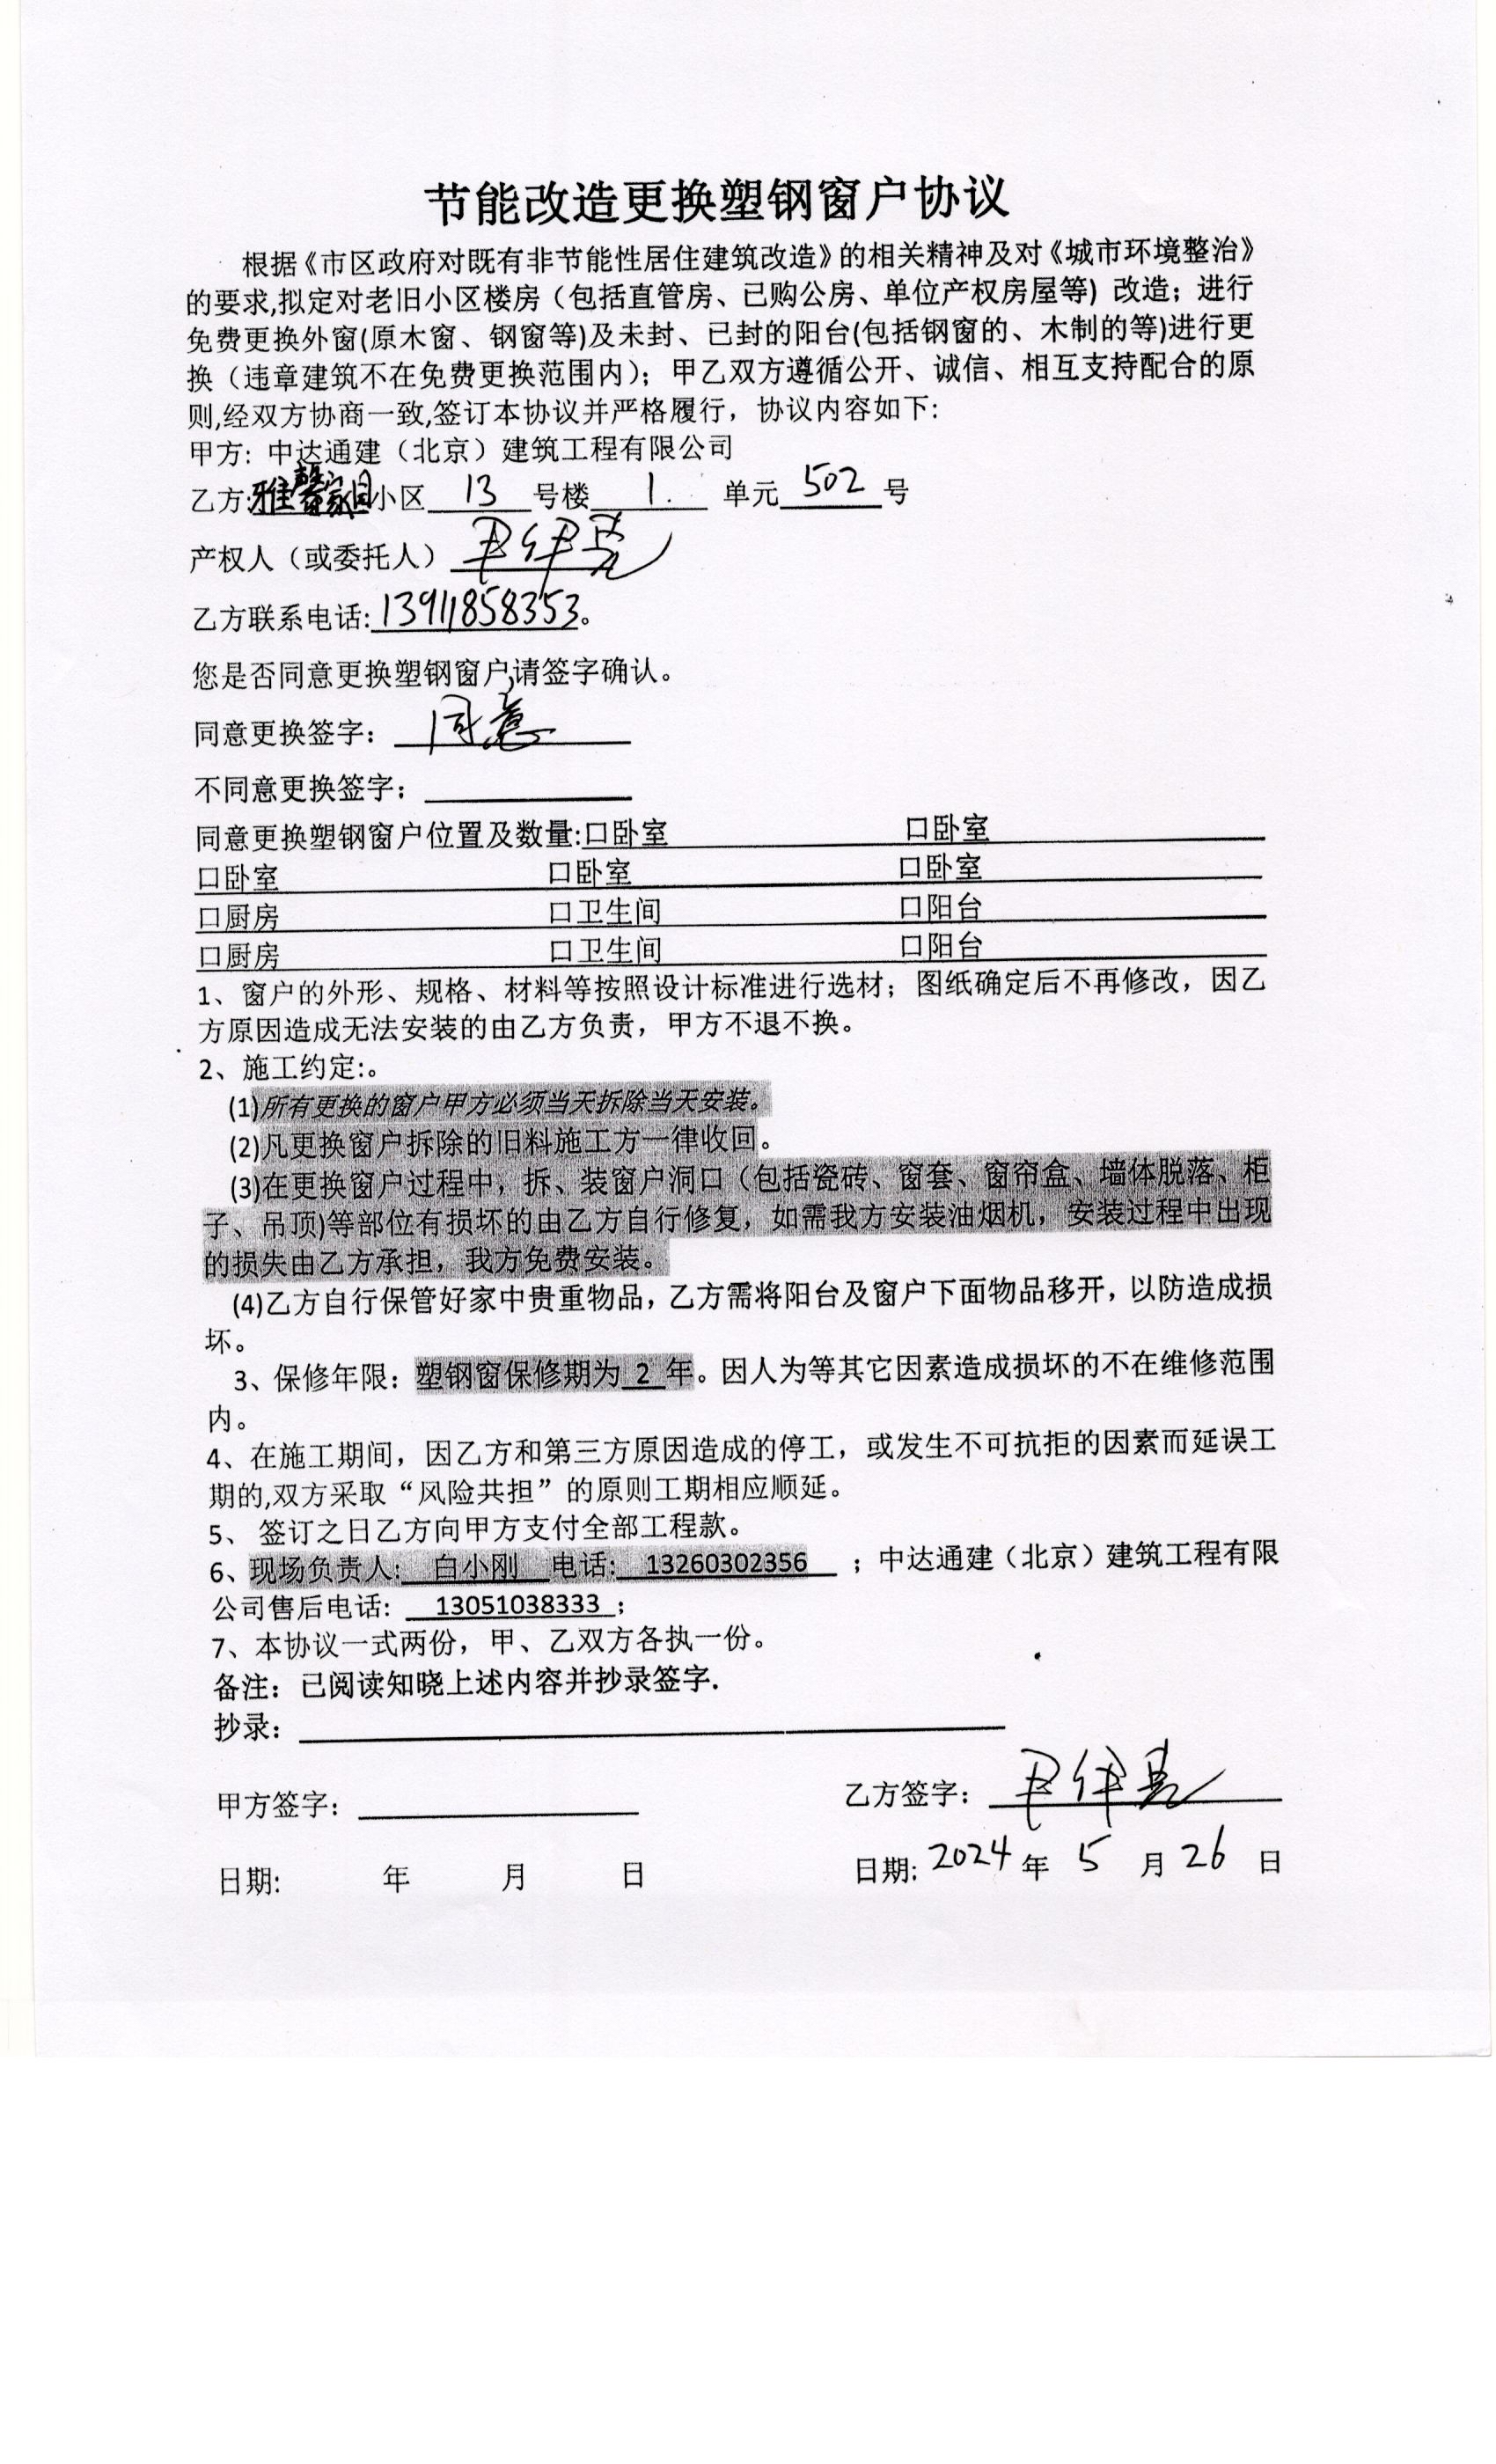 节能改造更换塑钢窗户协议
根据《市区政府对既有非节能性居住建筑改造》的相关精神及对《城市环境整治》
的要求,拟定对老旧小区楼房（包括直管房、已购公房、单位产权房屋等）改造；进行
免费更换外窗(原木窗、钢窗等)及未封、已封的阳台(包括钢窗的、木制的等)进行更
换（违章建筑不在免费更换范围内）；甲乙双方遵循公开、诚信、相互支持配合的原
则,经双方协商一致,签订本协议并严格履行，协议内容如下：
甲方：中达通建（北京）建筑工程有限公司
乙方:雅馨家园小区 13 号楼 1. 单元 502 号
产权人（或委托人）尹
乙方联系电话:13911858353。
您是否同意更换塑钢窗户,请签字确认。
同意更换签字：同意
不同意更换签字；
同意更换塑钢窗户位置及数量:口卧室 口卧室
口卧室 口卧室 口卧室
口厨房 口卫生间 口阳台
口厨房 口卫生间 口阳台
1、窗户的外形、规格、材料等按照设计标准进行选材；图纸确定后不再修改，因乙
方原因造成无法安装的由乙方负责，甲方不退不换。
2、施工约定:。
(1)所有更换的窗户甲方必须当天拆除当天安装。
(2)凡更换窗户拆除的旧料施工方一律收回。
(3)在更换窗户过程中，拆、装窗户洞口（包括瓷砖、窗套、窗帘盒、墙体脱落、柜
子、吊顶)等部位有损坏的由乙方自行修复，如需我方安装油烟机，安装过程中出现
的损失由乙方承担，我方免费安装。
(4)乙方自行保管好家中贵重物品，乙方需将阳台及窗户下面物品移开，以防造成损
坏。
3、保修年限：塑钢窗保修期为 2 年。因人为等其它因素造成损坏的不在维修范围
内。
4、在施工期间，因乙方和第三方原因造成的停工，或发生不可抗拒的因素而延误工
期的,双方采取“风险共担”的原则工期相应顺延。
5、 签订之日乙方向甲方支付全部工程款。
6、现场负责人: 白小刚 电话: 13260302356 ；中达通建（北京）建筑工程有限
公司售后电话: 13051038333 ；
7、本协议一式两份，甲、乙双方各执一份。
备注：已阅读知晓上述内容并抄录签字.
抄录：
甲方签字： 乙方签字：尹
日期: 年 月 日 日期:2024年 5 月 26 日